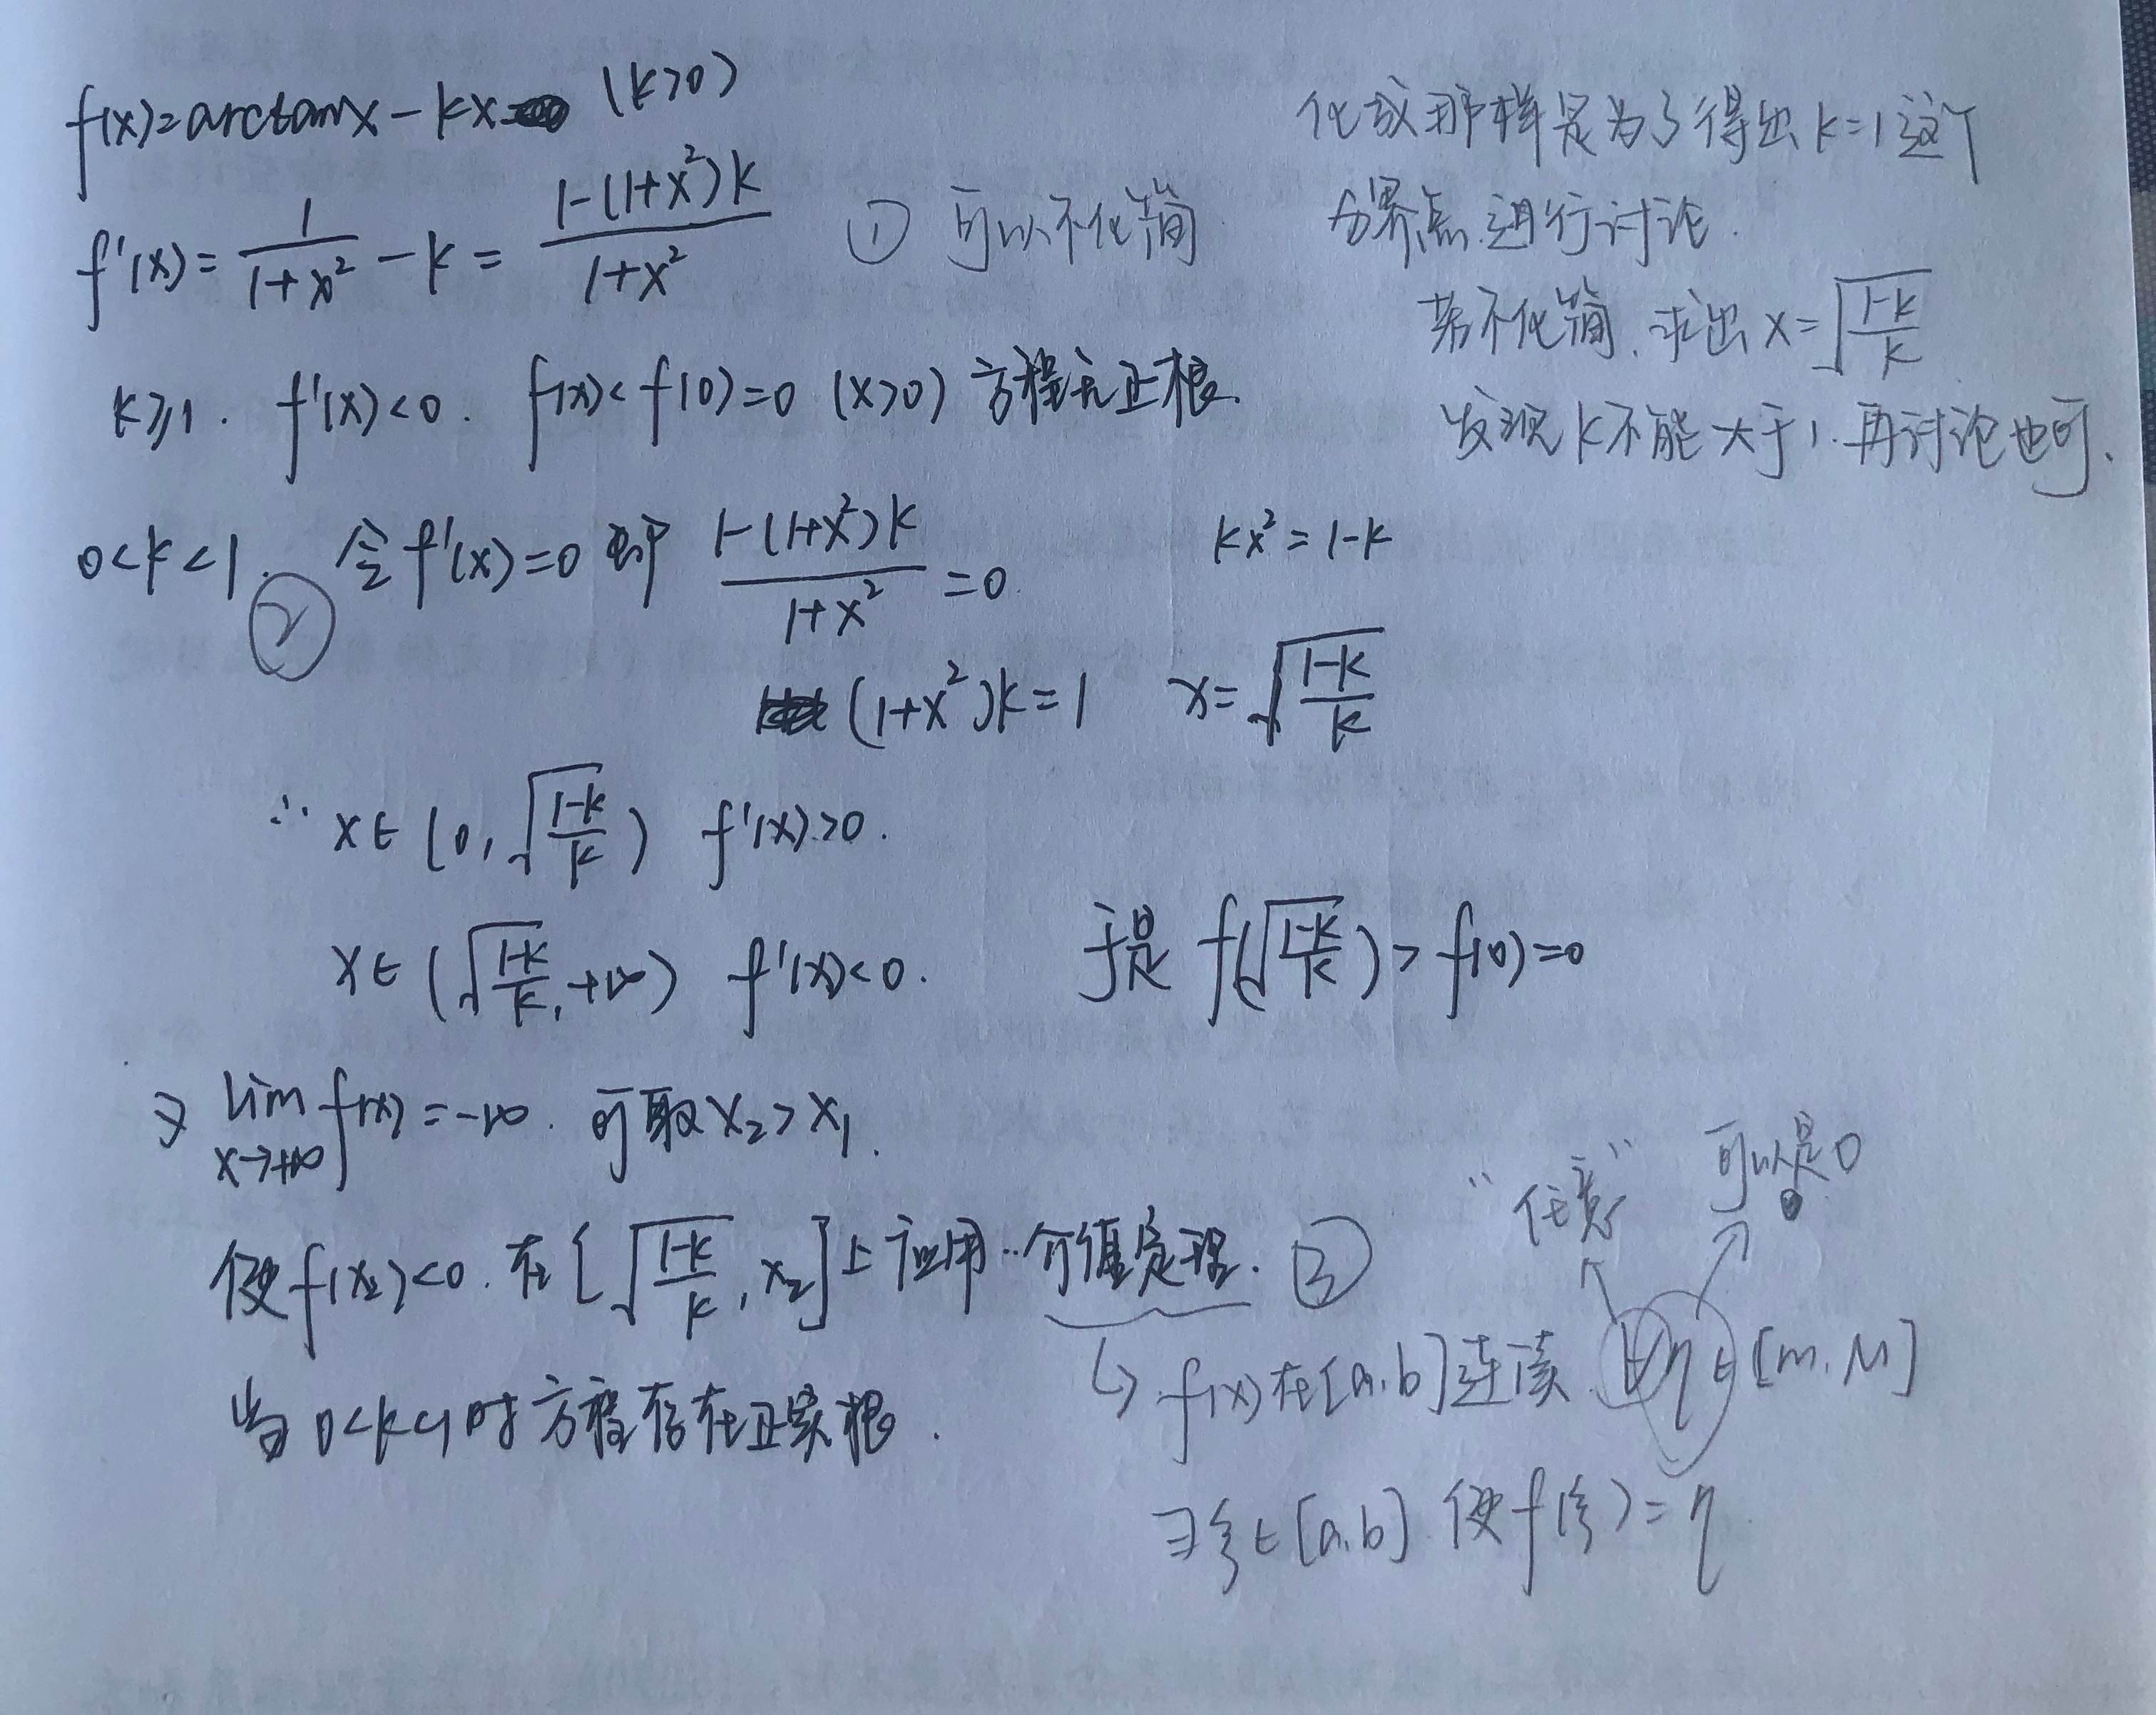 f(x)=arctanx-kx (k>0)
f'(x)=1/(1+x²)-k=(1-(1+x²)k)/(1+x²) ① 可以不化简
化成那样是为了得出k=1这个
分界点.进行讨论.
若不化简.求出x=√((1-k)/k)
发现k不能大于1.再讨论也可.
k≥1. f'(x)<0. f(x)<f(0)=0 (x>0) 方程无正根.
0<k<1. ② 令f'(x)=0即 (1-(1+x²)k)/(1+x²)=0. kx²=1-k
(1+x²)k=1 x=√((1-k)/k)
∴ x∈(0,√((1-k)/k)) f'(x)>0.
x∈(√((1-k)/k),+∞) f'(x)<0. 于是 f(√((1-k)/k))>f(0)=0
又 lim x→+∞ f(x)=-∞. 可取x₂>x₁.
使f(x₂)<0. 在[√((1-k)/k),x₂]上应用..介值定理. ③
当0<k<1时方程存在正实根.
"任意" 可以是0
↳ f(x)在[a.b]连续.∀η∈[m.M]
∃ξ∈[a.b].使f(ξ)=η.